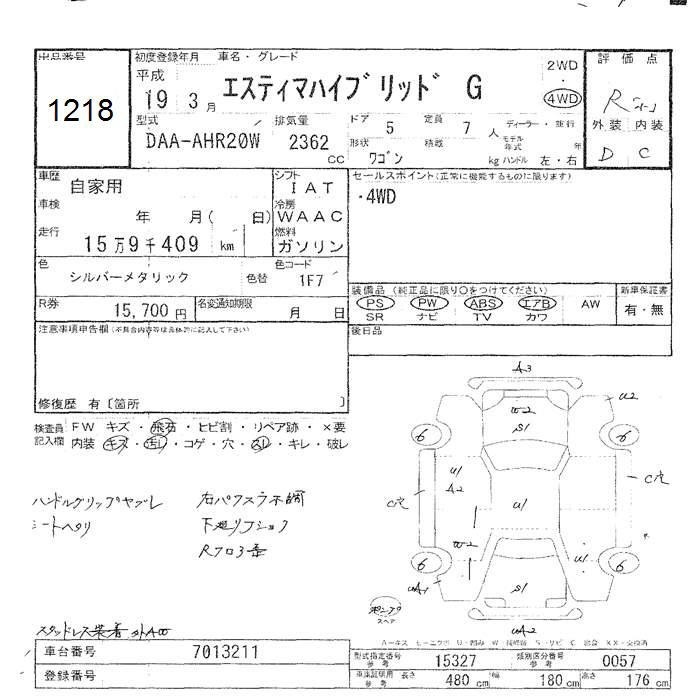 出品番号
1218
初度登録年月 車名・グレード
平成
19 3月
エスティマハイブリッド G
2WD
・
4WD
評価点
R
外装 内装
D C
型式
DAA-AHR20W
排気量
2362
CC
ドア
5
定員
7
人
ディーラー・並行
モデル年式
年
形状
ワゴン
積載
kg
ハンドル 左・右
車歴
自家用
シフト
IAT
セールスポイント(正常に機能するものに限ります)
・4WD
車検
年 月( 日)
冷房
WAAC
走行
15万9千409 km
燃料
ガソリン
色
シルバーメタリック
色替
色コード
1F7
装備品 (純正品に限り○をつけてください)
PS PW ABS エアB AW
SR ナビ TV カワ
新車保証書
有・無
R券
15,700円
名変通知期限
月 日
後日品
注意事項申告欄(不具合内容等は具体的に記入して下さい)
修復歴 有〔箇所 〕
検査員記入欄
FW キズ・飛石・ヒビ割・リペア跡・×要
内装 キズ・汚レ・コゲ・穴・スレ・キレ・破レ
ハンドルグリップヤブレ
シートヘタリ
下廻リ
スタッドレス装着
A3
W2
S1
U2
6
6
U1
A2
C穴
U1
C穴
W2
6
6
U1
S1
UA1
UA2
スペア
A-キズ
車台番号 7013211
登録番号
型式指定番号
参考
15327
類別区分番号
参考
0057
車庫証明用
参考
長さ 480 cm 幅 180 cm 高さ 176 cm